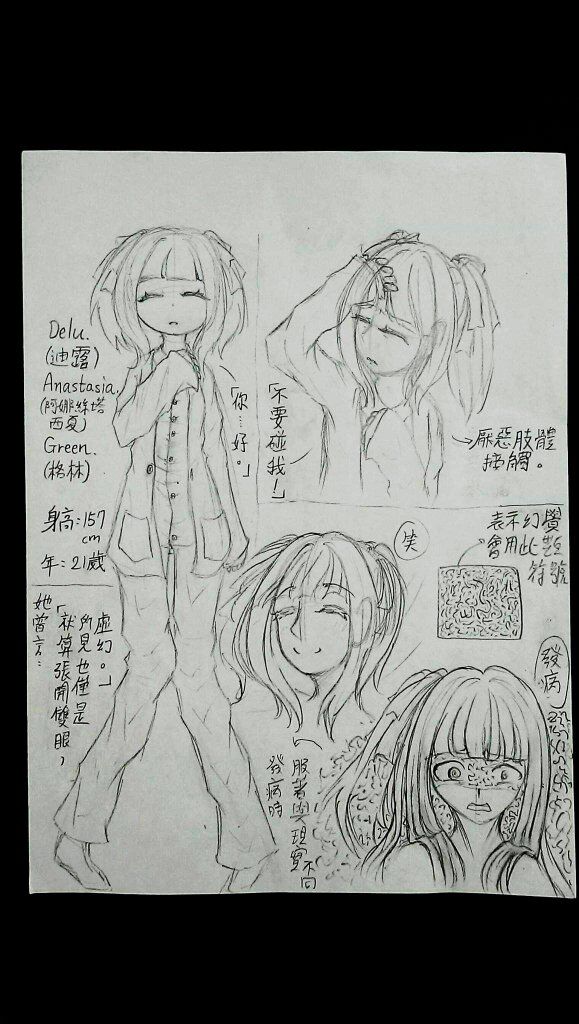 Delu.
(迪露)
Anastasia.
(阿娜絲塔
西夏)
Green.
(格林)
身高：157
cm
年：21歲
「你…好。」
「不要碰我！」
→厭惡肢體
接觸。
表示幻覺
會用此類
符號
笑
發病
她曾言：
「就算張開雙眼，
所見也僅是
虛幻。」
發病時
服著與現實不同